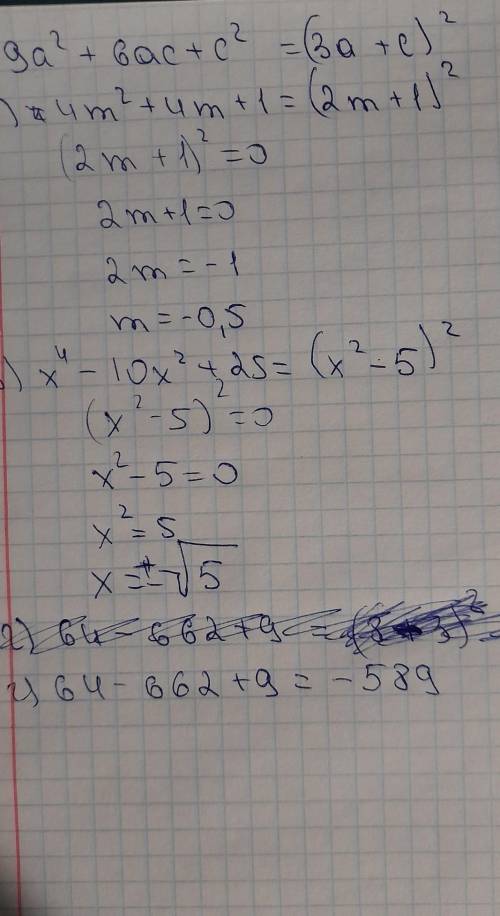 9a² + 6ac + c² = (3a + c)²
) 4m² + 4m + 1 = (2m + 1)²
(2m + 1)² = 0
2m + 1 = 0
2m = -1
m = -0,5
) x⁴ - 10x² + 25 = (x² - 5)²
(x² - 5)² = 0
x² - 5 = 0
x² = 5
x = ±√5
г) 64 - 662 + 9 =
г) 64 - 662 + 9 = -589